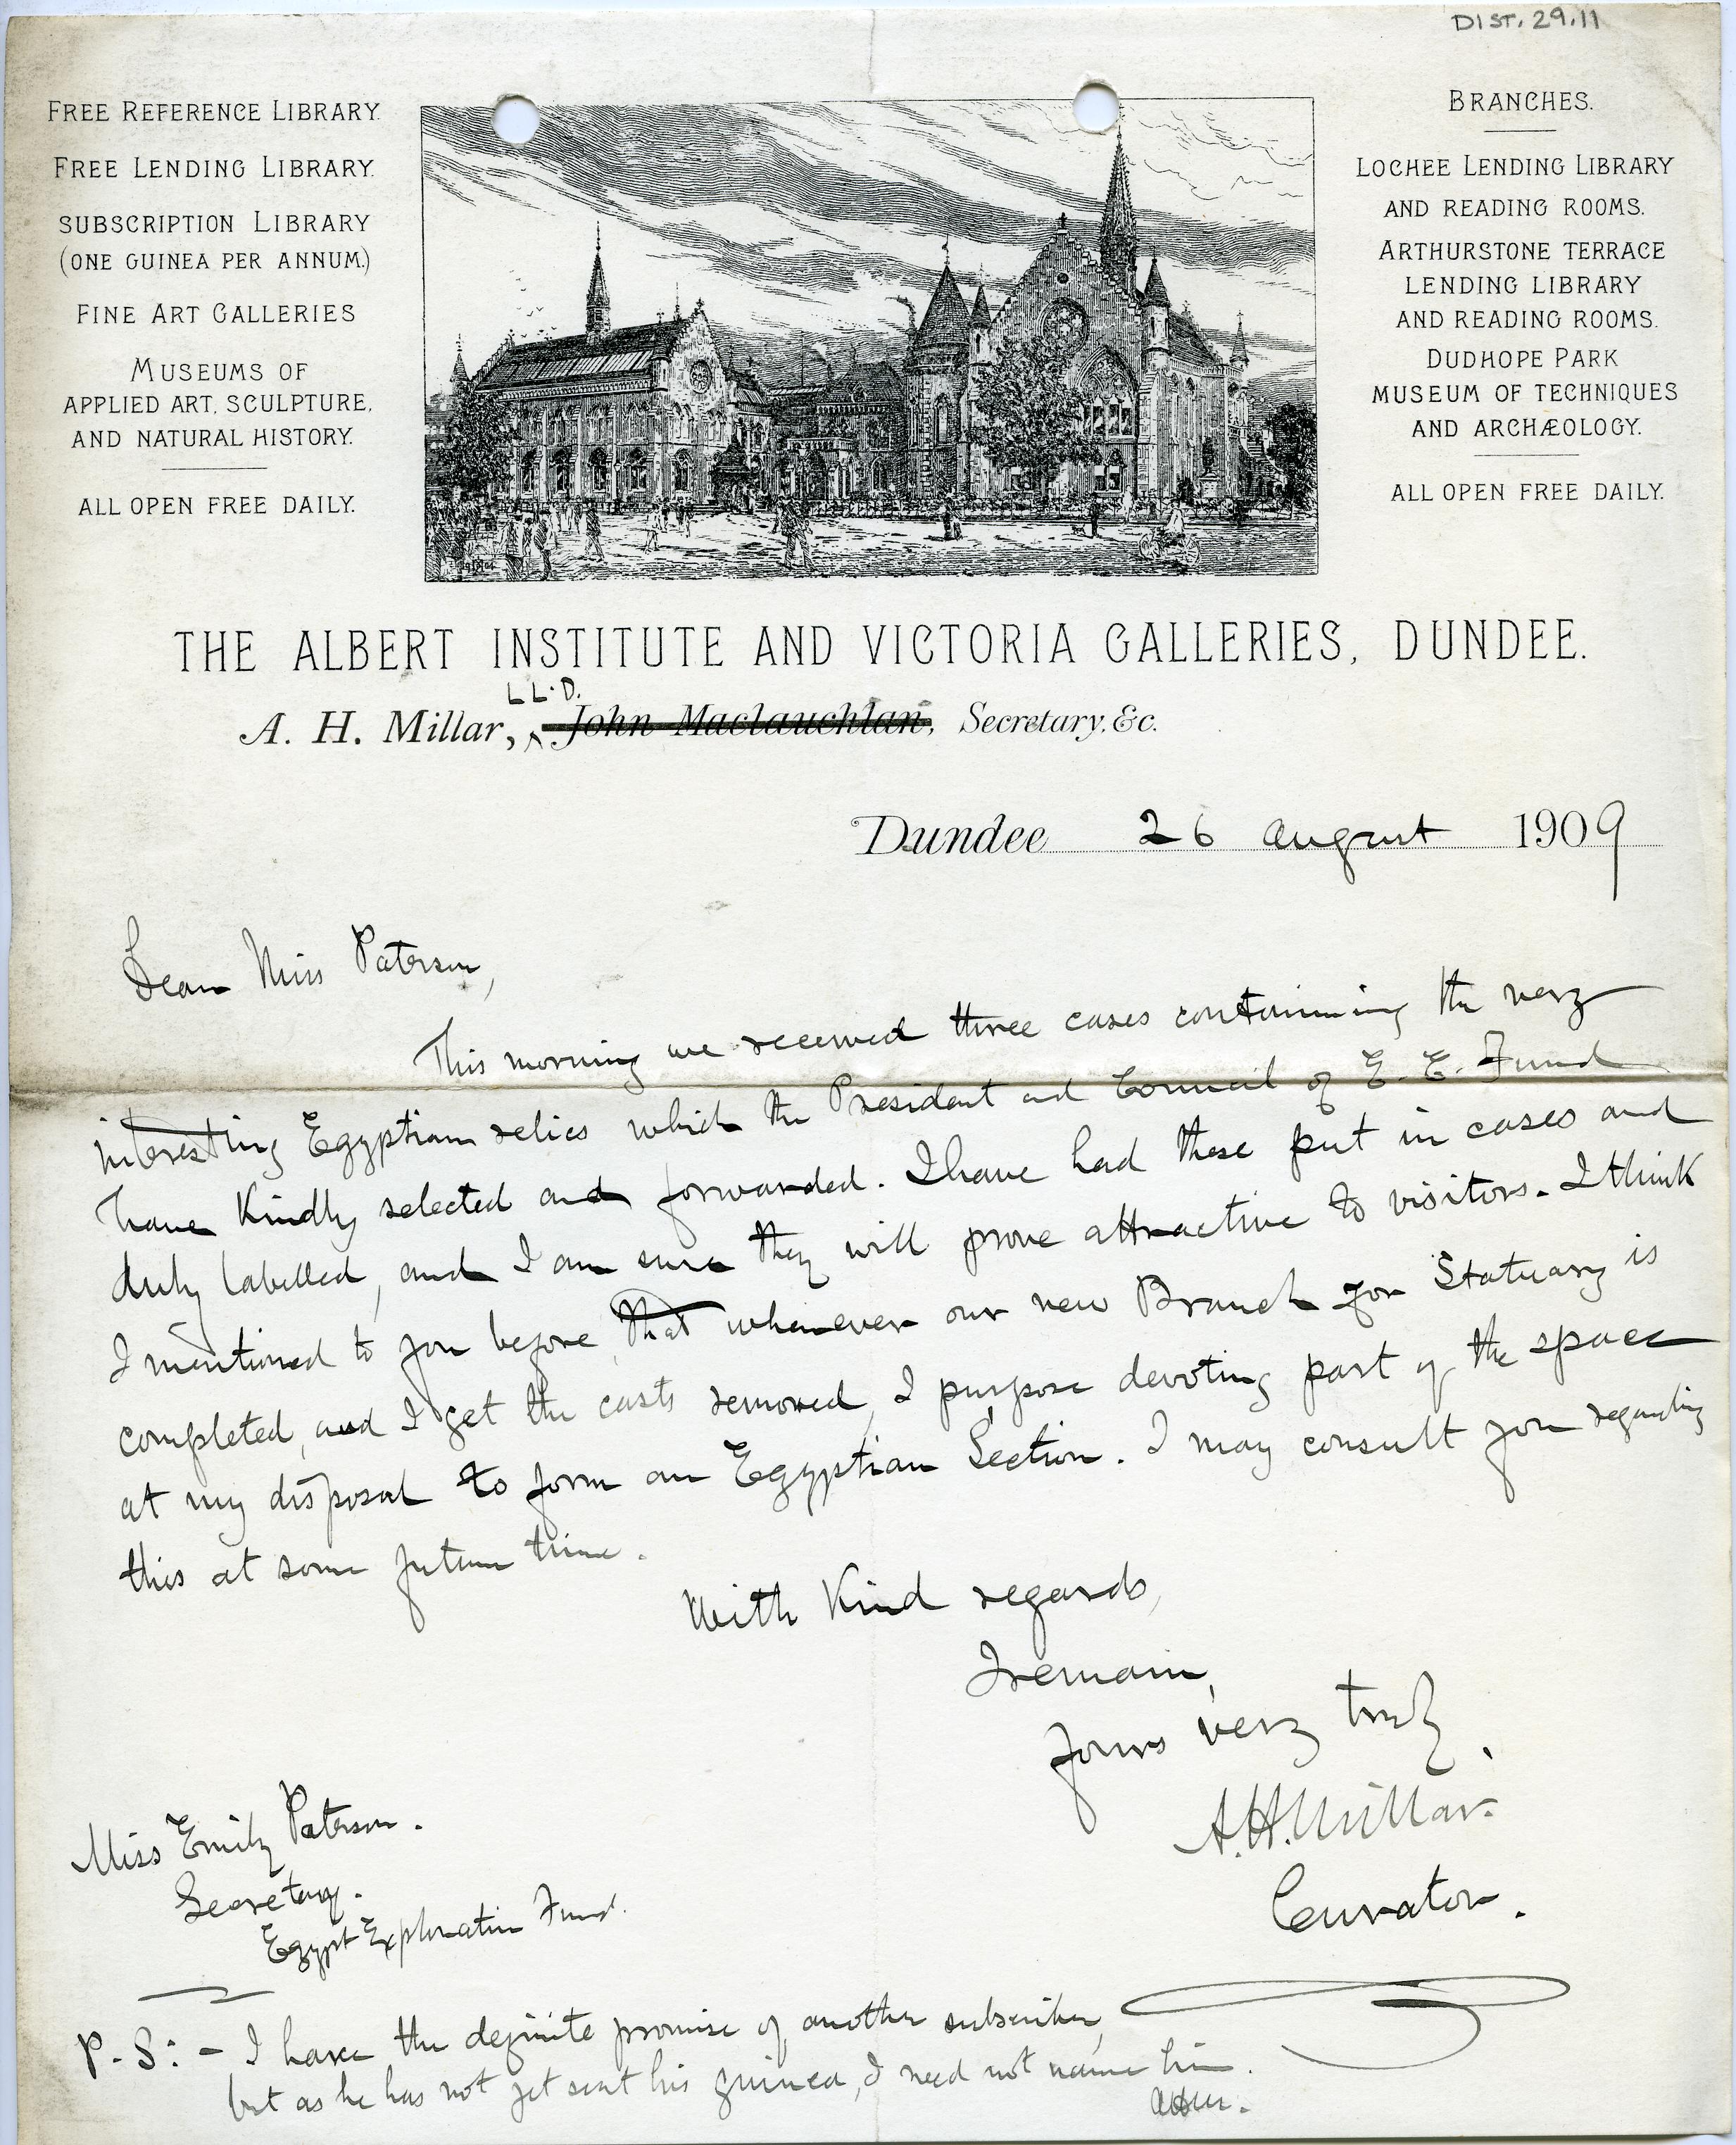 DIST. 29.11
FREE REFERENCE LIBRARY.
FREE LENDING LIBRARY.
SUBSCRIPTION LIBRARY
(ONE GUINEA PER ANNUM.)
FINE ART GALLERIES
MUSEUMS OF
APPLIED ART, SCULPTURE,
AND NATURAL HISTORY.
ALL OPEN FREE DAILY.
BRANCHES.
LOCHEE LENDING LIBRARY
AND READING ROOMS.
ARTHURSTONE TERRACE
LENDING LIBRARY
AND READING ROOMS.
DUDHOPE PARK
MUSEUM OF TECHNIQUES
AND ARCHÆOLOGY.
ALL OPEN FREE DAILY.
THE ALBERT INSTITUTE AND VICTORIA GALLERIES, DUNDEE.
LL.D.
A. H. Millar, John Maclauchlan, Secretary, &c.
Dundee 26 August 1909
Dear Miss Paterson,
This morning we received three cases containing the very
interesting Egyptian relics which the President and Council of E. E. Fund
have kindly selected and forwarded. I have had these put in cases and
duly labelled, and I am sure they will prove attractive to visitors. I think
I mentioned to you before, that whenever our new Branch for Statuary is
completed, and I get the casts removed, I purpose devoting part of the space
at my disposal to form an Egyptian Section. I may consult you regarding
this at some future time.
With kind regards,
I remain,
Yours very truly,
A. H. Millar.
Curator.
Miss Emily Paterson.
Secretary.
Egypt Exploration Fund.
P.S: – I have the definite promise of another subscriber,
but as he has not yet sent his guinea, I need not name him.
AHM.